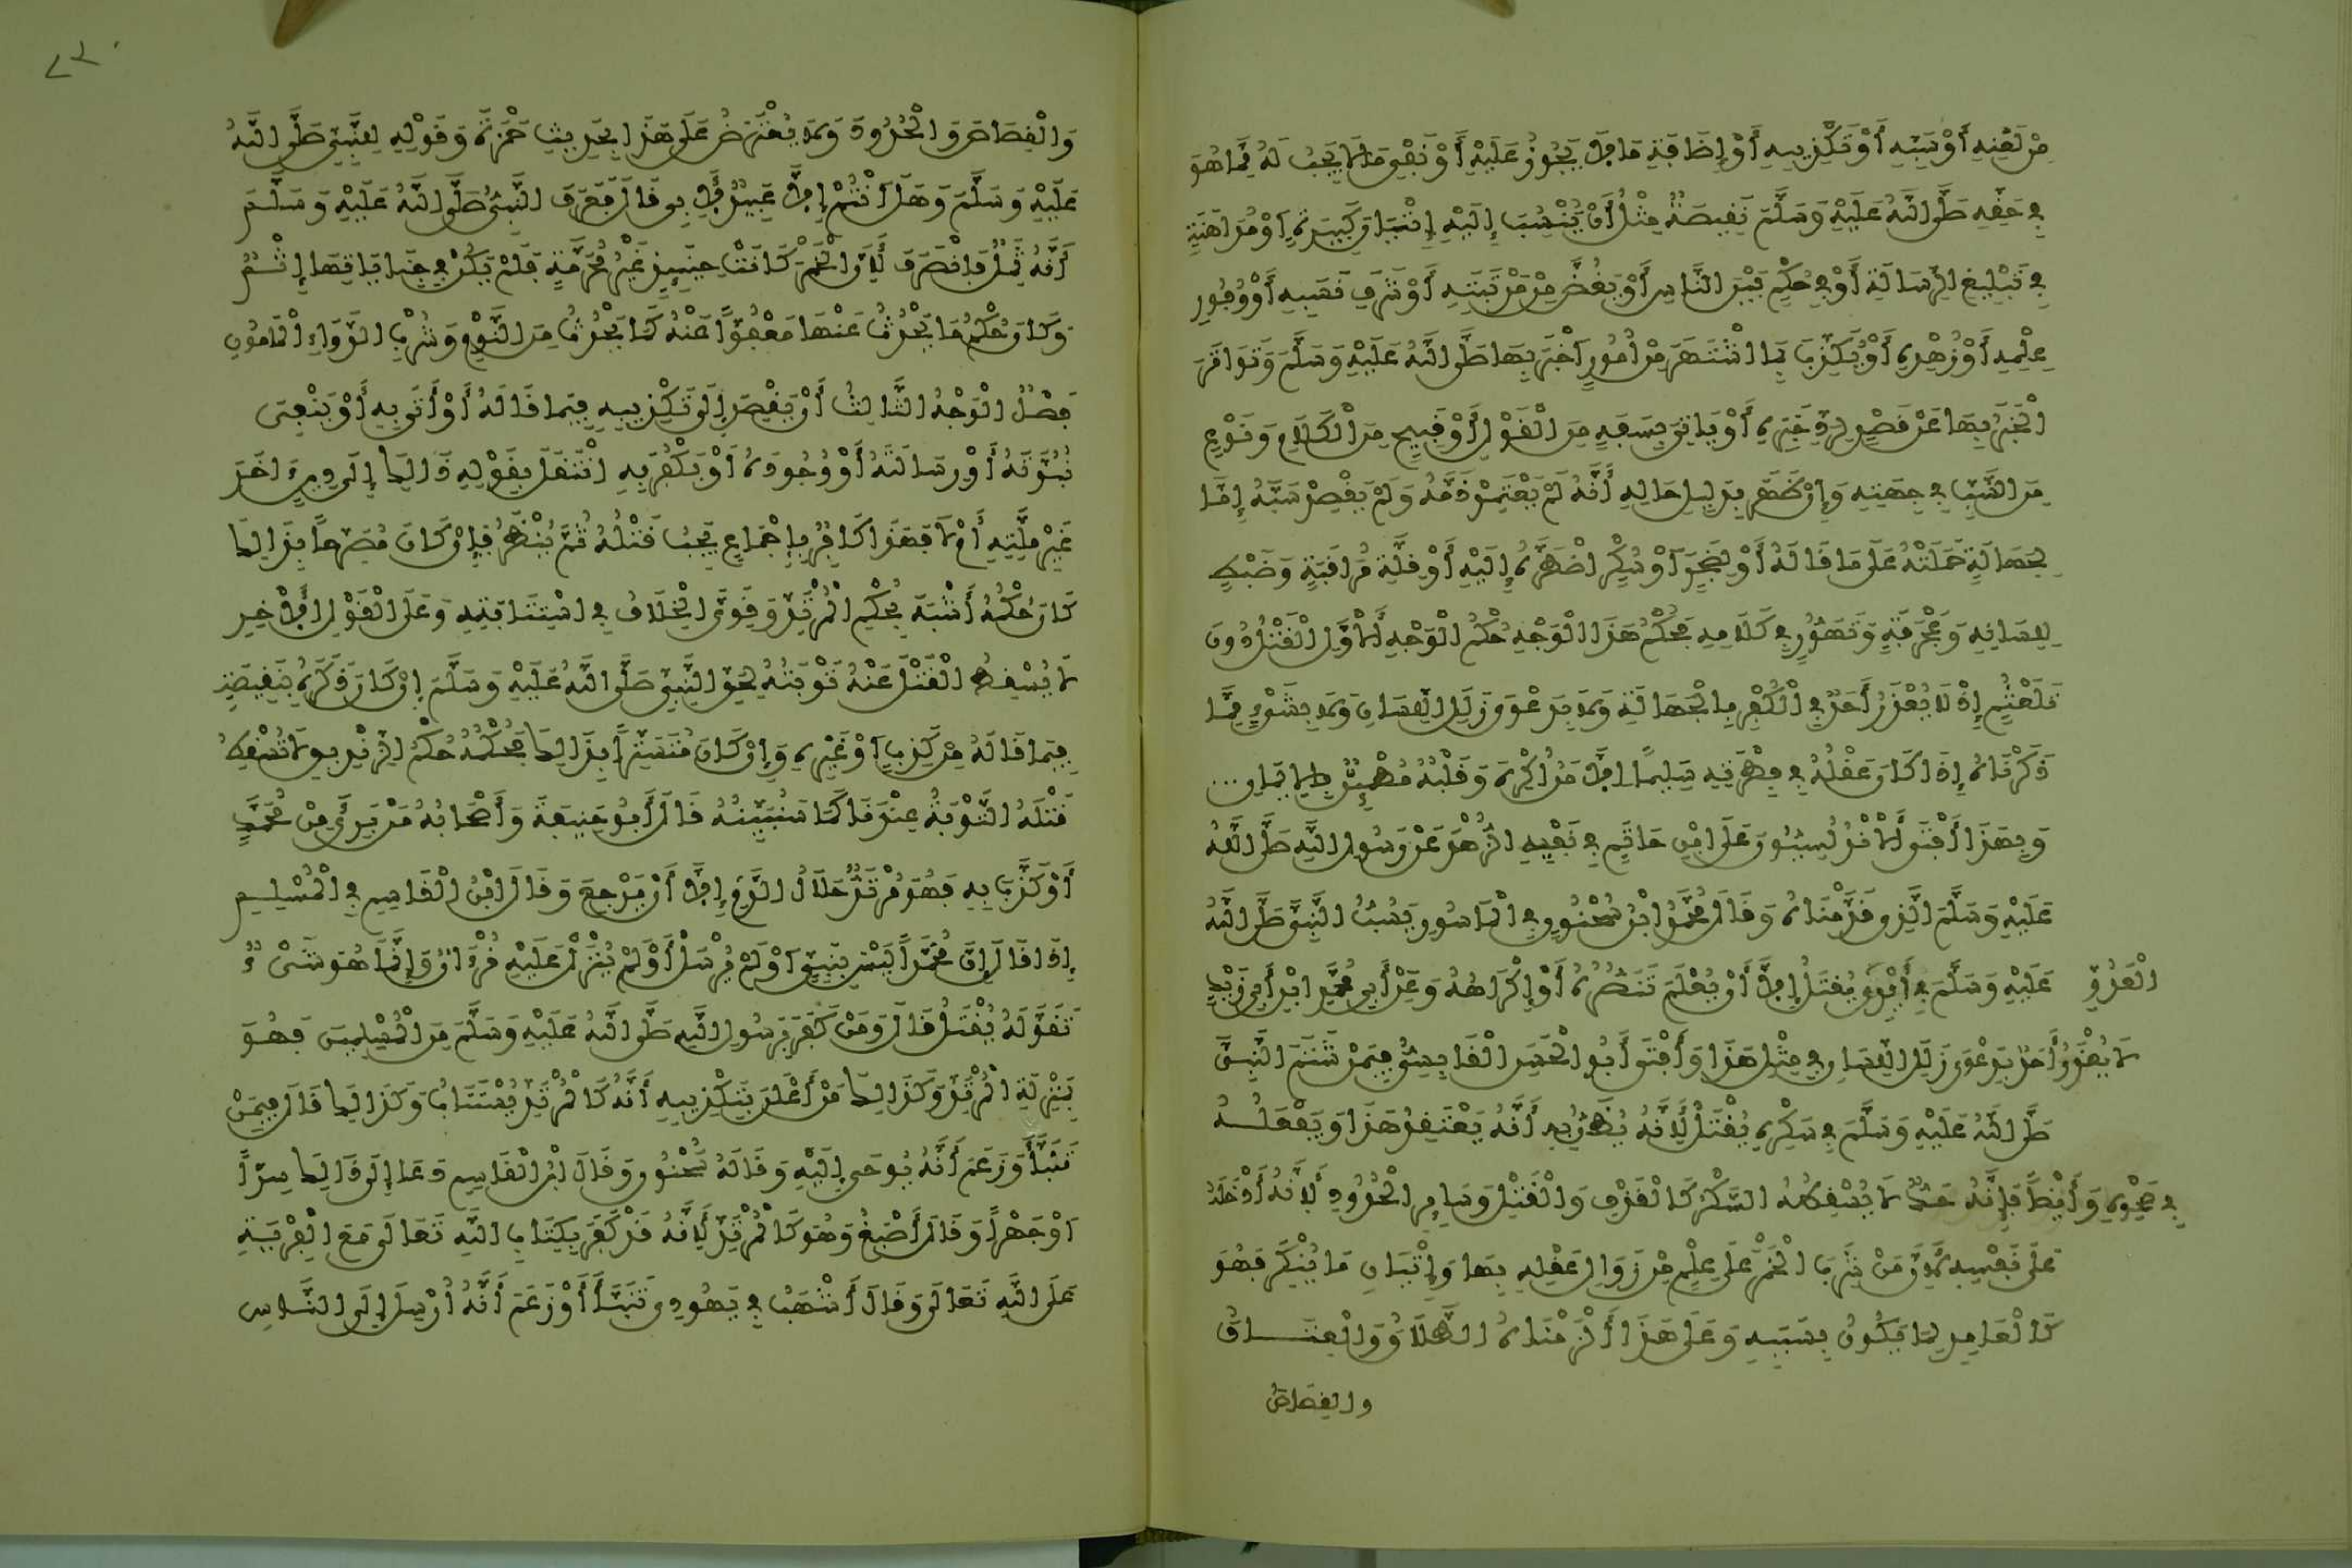 مِنْ لَعْنِهِ أَوْ سَبِّهِ أَوْ تَكْذِيبِهِ أَوْ إِضَافَةِ مَا لَا يَجُوزُ عَلَيْهِ أَوْ نَفْيِ مَا يَجِبُ لَهُ مِمَّا هُوَ
فِي حَقِّهِ صَلَّى اللَّهُ عَلَيْهِ وَسَلَّمَ نَقِيصَةٌ مِثْلُ أَنْ يُنْسَبَ إِلَيْهِ إِتْيَانَ كَبِيرَةٍ أَوْ مُدَاهَنَةٍ
فِي تَبْلِيغِ الرِّسَالَةِ أَوْ فِي حُكْمٍ بَيْنَ النَّاسِ أَوْ يَغُضَّ مِنْ مَرْتَبَتِهِ أَوْ شَرَفِ نَسَبِهِ أَوْ وُفُورِ
عِلْمِهِ أَوْ زُهْدِهِ أَوْ يُكَذِّبَ بِمَا اشْتَهَرَ مِنْ أُمُورٍ أَخْبَرَ بِهَا صَلَّى اللَّهُ عَلَيْهِ وَسَلَّمَ وَتَوَاتَرَ
الْخَبَرُ بِهَا عَنْ قَصْدٍ لِرَدِّ خَبَرِهِ أَوْ يَاتِيَ بِسَفَهٍ مِنَ الْقَوْلِ أَوْ قَبِيحٍ مِنَ الْكَلَامِ وَنَوْعٍ
مِنَ السَّبِّ فِي جِهَتِهِ وَإِنْ ظَهَرَ بِدَلِيلِ حَالِهِ أَنَّهُ لَمْ يَعْتَمِدْ ذَمَّهُ وَلَمْ يَقْصِدْ سَبَّهُ إِمَّا
لِجَهَالَةٍ حَمَلَتْهُ عَلَى مَا قَالَهُ أَوْ لِضَجَرٍ أَوْ سُكْرٍ اضْطَرَّهُ إِلَيْهِ أَوْ قِلَّةِ مُرَاقَبَةٍ وَضَبْطٍ
لِلِسَانِهِ وَعَجْرَفَةٍ وَتَهَوُّرٍ فِي كَلَامِهِ فَحُكْمُ هَذَا الْوَجْهِ حُكْمُ الْوَجْهِ الْأَوَّلِ الْقَتْلُ دُونَ
تَلَعْثُمٍ إِذْ لَا يُعْذَرُ أَحَدٌ فِي الْكُفْرِ بِالْجَهَالَةِ وَلَا بِدَعْوَى زَلَلِ اللِّسَانِ وَلَا بِشَيْءٍ مِمَّا
ذَكَرْنَاهُ إِذَا كَانَ عَقْلُهُ فِي فِطْرَتِهِ سَلِيمًا إِلَّا مَنُ اكْرِهَ وَقَلْبُهُ مُطْمَئِنٌّ بِالْإِيمَانِ ...
وَبِهَذَا أَفْتَى الْأَنْدَلُسِيُّونَ عَلَى ابْنِ حَاتِمٍ فِي نَفْيِهِ الزُّهْدَ عَنْ رَسُولِ اللَّهِ صَلَّى اللَّهُ
عَلَيْهِ وَسَلَّمَ الَّذِي قَدَّمْنَاهُ وَقَالَ مُحَمَّدُ ابْنُ سُحْنُونٍ فِي الْمَاسُورِ يَسُبُّ النَّبِيَّ صَلَّى اللَّهُ
عَلَيْهِ وَسَلَّمَ فِي أَيْدِي يُقْتَلُ إِلَّا أَنْ يُعْلَمَ تَنَصُّرُهُ أَوْ إِكْرَاهُهُ وَعَنْ أَبِي مُحَمَّدٍ ابْنِ أَبِي زَيْدٍ
الْعَدُوِّ
لَا يُعْذَرُ أَحَدٌ بِدَعْوَى زَلَلِ اللِّسَانِ فِي مِثْلِ هَذَا وَأَفْتَى أَبُو الْحَسَنِ الْقَابِسِيُّ فِيمَنْ شَتَمَ النَّبِيَّ
صَلَّى اللَّهُ عَلَيْهِ وَسَلَّمَ فِي سُكْرِهِ يُقْتَلُ لِأَنَّهُ يُظَنُّ بِهِ أَنَّهُ يَعْتَقِدُ هَذَا وَيَفْعَلُهُ
فِي صَحْوِهِ وَأَيْضًا فَإِنَّهُ حَدٌّ لَا يُسْقِطُهُ السُّكْرُ كَالْقَذْفِ وَالْقَتْلِ وَسَايِرِ الْحُدُودِ لِأَنَّهُ أَدْخَلَهُ
عَلَى نَفْسِهِ لِأَنَّ مَنْ شَرِبَ الْخَمْرَ عَلَى عِلْمٍ مِنْ زَوَالِ عَقْلِهِ بِهَا وَإِتْيَانِ مَا يُنْكَرُ فَهُوَ
كَالْعَامِدِ لِمَا يَكُونُ بِسَبَبِهِ وَعَلَى هَذَا أَلْزَمْنَاهُ الطَّلَاقَ وَالْعِتَاقَ
والقصاص
٢٢٠
وَالْقِصَاصَ وَالْحُدُودَ وَلَا يُعْتَرَضُ عَلَى هَذَا بِحَدِيثِ حَمْزَةَ وَقَوْلِهِ لِلنَّبِيِّ صَلَّى اللَّهُ
عَلَيْهِ وَسَلَّمَ وَهَلْ أَنْتُمْ إِلَّا عَبِيدٌ لِأَبِي قَالَ فَعَرَفَ النَّبِيُّ صَلَّى اللَّهُ عَلَيْهِ وَسَلَّمَ
أَنَّهُ ثَمِلٌ فَانْصَرَفَ لِأَنَّ الْخَمْرَ كَانَتْ حِينَئِذٍ غَيْرَ مُحَرَّمَةٍ فَلَمْ يَكُنْ فِي جِنَايَاتِهَا إِثْمٌ
وَكَانَ حُكْمُ مَا يَحْدُثُ عَنْهَا مَعْفُوًّا عَنْهُ كَمَا يَحْدُثُ مِنَ النَّوْمِ وَشُرْبِ الدَّوَاءِ الْمَامُونِ
فَصْلٌ الْوَجْهُ الثَّالِثُ أَنْ يَقْصِدَ إِلَى تَكْذِيبِهِ فِيمَا قَالَهُ أَوْ أَتَى بِهِ أَوْ يَنْفِيَ
نُبُوَّتَهُ أَوْ رِسَالَتَهُ أَوْ وُجُودَهُ أَوْ يَكْفُرَ بِهِ انْتَقَلَ بِقَوْلِهِ ذَالِكَ إِلَى دِينٍ اخَرَ
غَيْرِ مِلَّتِهِ أَمْ لَا فَهَذَا كَافِرٌ بِإِجْمَاعٍ يَجِبُ قَتْلُهُ ثُمَّ يُنْظَرُ فَإِنْ كَانَ مُصَرِّحًا بِذَالِكَ
كَانَ حُكْمُهُ أَشْبَهَ بِحُكْمِ الْمُرْتَدِّ وَقَوِيَ الْخِلَافُ فِي اسْتِتَابَتِهِ وَعَلَى الْقَوْلِ الْأَخِيرِ
لَا يُسْقِطُ الْقَتْلَ عَنْهُ تَوْبَتُهُ لِحَقِّ النَّبِيِّ صَلَّى اللَّهُ عَلَيْهِ وَسَلَّمَ إِنْ كَانَ ذَكَرَهُ بِنَقِيصَةٍ
فِيمَا قَالَهُ مِنْ كَذِبٍ أَوْ غَيْرِهِ وَإِنْ كَانَ مُتَسَتِّرًا بِذَالِكَ فَحُكْمُهُ حُكْمُ الزِّنْدِيقِ لَا تُسْقِطُ
قَتْلَهُ التَّوْبَةُ عِنْدَنَا كَمَا سَنُبَيِّنُهُ قَالَ أَبُو حَنِيفَةَ وَأَصْحَابُهُ مَنْ بَرِئَ مِنْ مُحَمَّدٍ
أَوْ كَذَّبَ بِهِ فَهُوَ مُرْتَدٌّ حَلَالُ الدَّمِ إِلَّا أَنْ يَرْجِعَ وَقَالَ ابْنُ الْقَاسِمِ فِي الْمُسْلِمِ
إِذَا قَالَ إِنَّ مُحَمَّدًا لَيْسَ بِنَبِيٍّ أَوْ لَمْ يُرْسَلْ أَوْ لَمْ يُنْزَلْ عَلَيْهِ قُرْءَانٌ وَإِنَّمَا هُوَ شَيْءٌ
تَقَوَّلَهُ يُقْتَلُ قَالَ وَمَنْ كَفَرَ بِرَسُولِ اللَّهِ صَلَّى اللَّهُ عَلَيْهِ وَسَلَّمَ مِنَ الْمُسْلِمِينَ فَهُوَ
بِمَنْزِلَةِ الْمُرْتَدِّ وَكَذَالِكَ مَنْ أَعْلَنَ بِتَكْذِيبِهِ أَنَّهُ كَالْمُرْتَدِّ يُسْتَتَابُ وَكَذَالِكَ قَالَ فِيمَنْ
تَنَبَّأَ وَزَعَمَ أَنَّهُ يُوحَى إِلَيْهِ وَقَالَهُ سُحْنُونٌ وَقَالَ ابْنُ الْقَاسِمِ دَعَا إِلَى ذَالِكَ سِرًّا
أَوْ جَهْرًا وَقَالَ أَصْبَغُ وَهُوَ كَالْمُرْتَدِّ لِأَنَّهُ قَدْ كَفَرَ بِكِتَابِ اللَّهِ تَعَالَى مَعَ الْفِرْيَةِ
عَلَى اللَّهِ تَعَالَى وَقَالَ أَشْهَبُ فِي يَهُودِيٍّ تَنَبَّأَ أَوْ زَعَمَ أَنَّهُ أُرْسِلَ إِلَى النَّاسِ